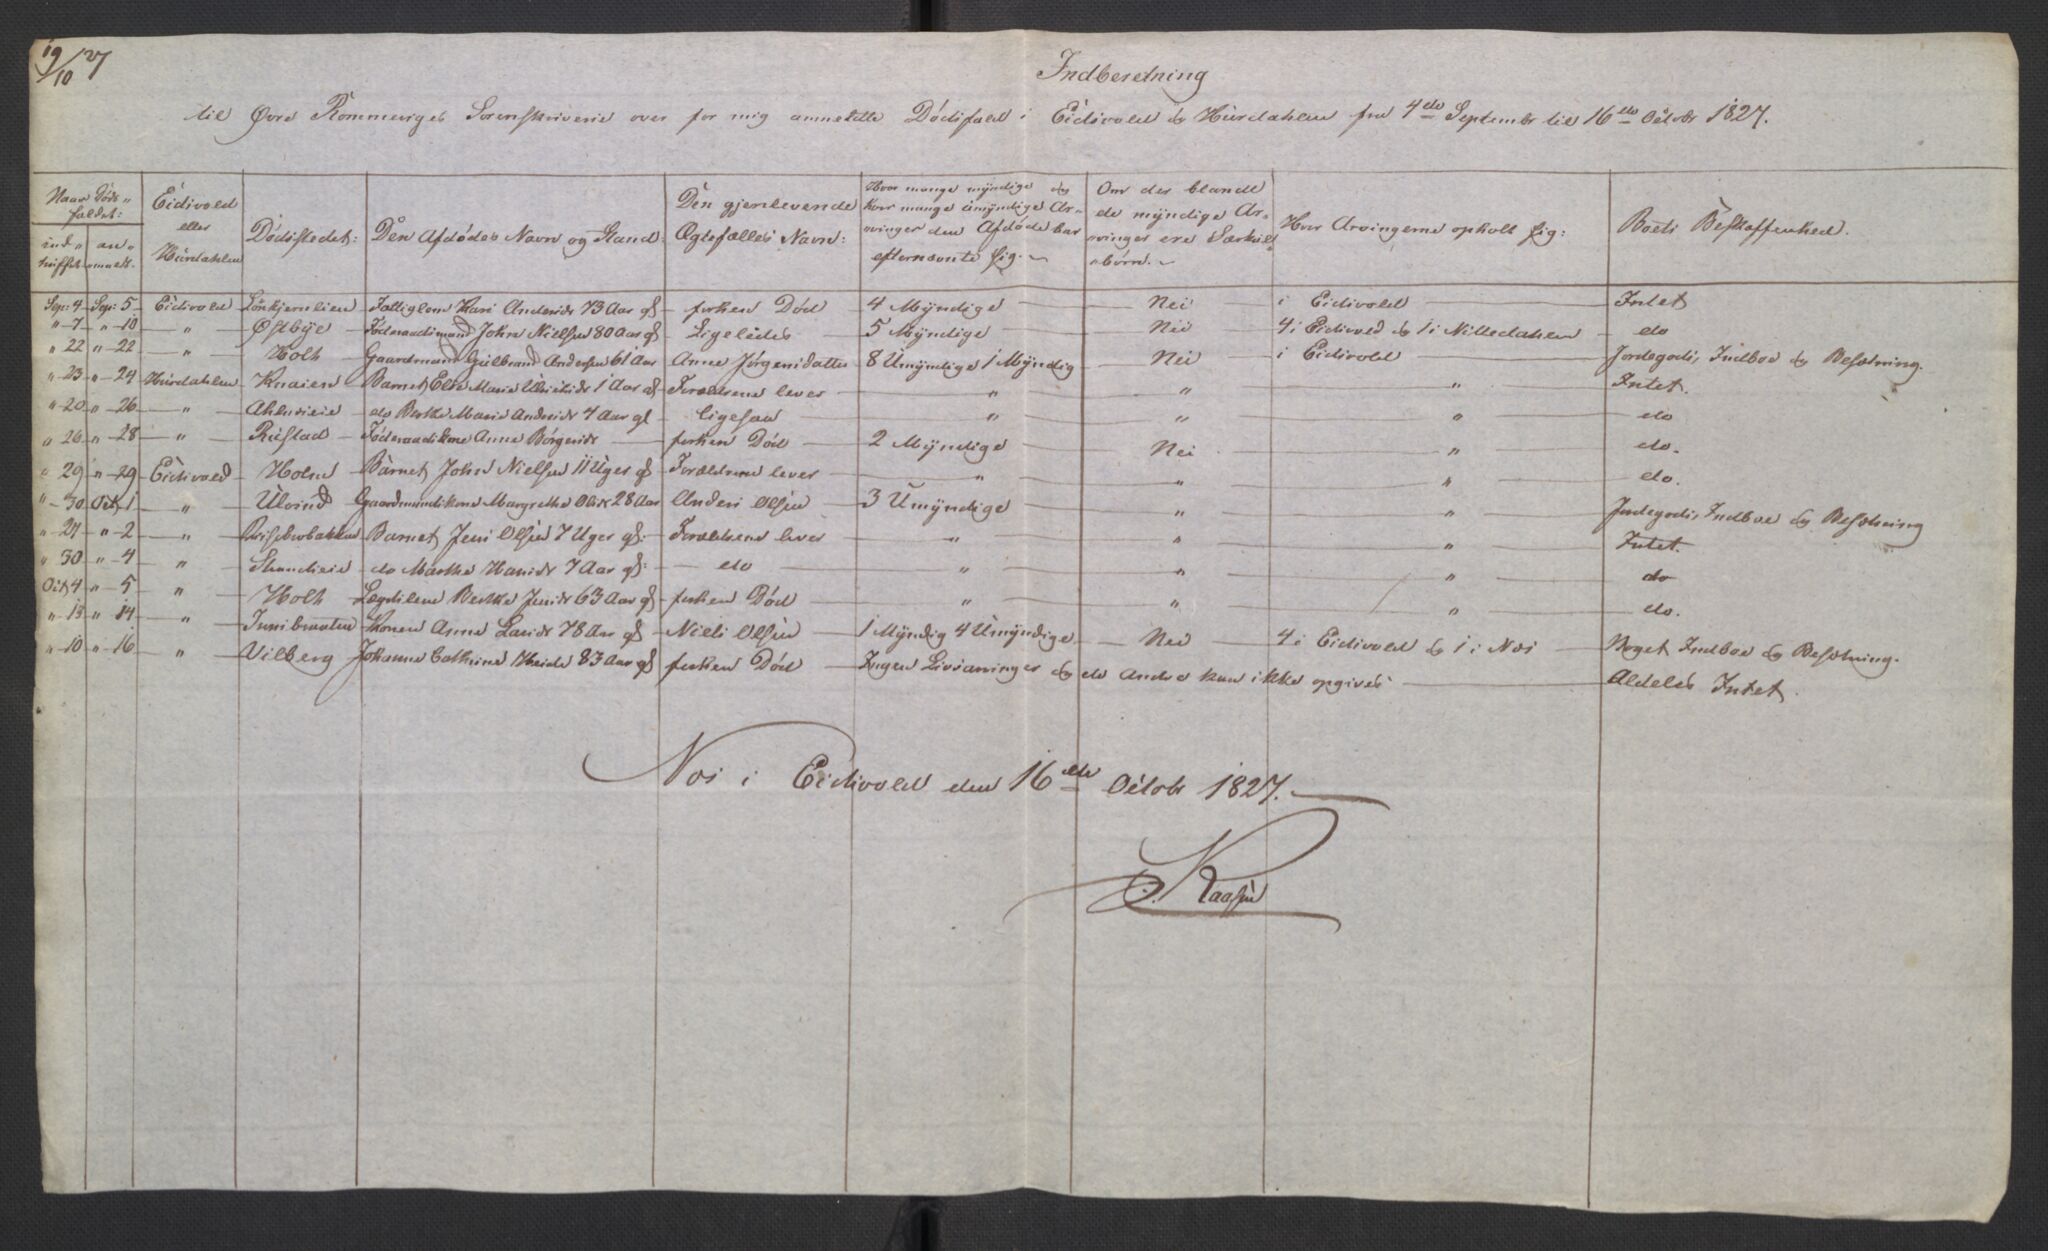 19/10 27
Indberetning
til Øvre Rommeriges Sorenskriverie over for mig anmeldte Dødsfald i Eidsvold og Hurdahlen fra 4de September til 16de Octobr 1827.
Naar Døds- faldet: indtruffet anmeldt. | Eidsvold eller Hurdahlen | Dødsstedet: | Den Afdødes Navn og Stand: | Den gjenlevende Ægtefælles Navn: | Hvor mange myndige og hvor mange umyndige Arvinger den Afdøde har efterladt sig. | Om der blandt de myndige Arvinger ere Særkuldsbørn. | Hvor Arvingerne opholt sig: | Boets Beskaffenhed.
Sep: 4 Sep: 5 Eidsvold Fattiglem Kari Andersdr 73 Aar gl forhen Død 4 Myndige Nei i Eidsvold Intet
" 7 " 10 " Østbye Føderaadsmand John Nielsen 80 Aar gl Ligeledes 5 Myndige Nei 4 i Eidsvold og 1 i Nittedahlen do
" 22 " 22 " Holt Gaardmand Gulbrand Andersen 61 Aar Anne Jørgensdatter 8 Umyndige 1 Myndig Nei i Eidsvold Jordegods, Indboe og Besætning.
" 23 " 24 Hurdahlen Knaien Barnet Else Marie 1 Aar gl Forældrene lever " " " Intet.
" 20 " 26 " do Berthe Marie Andersdr 4 Aar gl ligesaa " " " do
" 26 " 28 " Rustad Føderaadskone Anne Børgersdr forhen Død 2 Myndige Nei " do.
" 29 " 29 Eidsvold Holm Barnet John Nielsen 11 Uger gl Forældrene lever " " " do.
" 30 Oct 1 " Ulvind Gaardmandskone Margrethe Olsdr 28 Aar Anders Olsen 3 Umyndige " " Jordegods, Indboe og Besætning
" 24 " 2 " Barnet Jens Olsen 7 Uger gl: Forældrene lever " " " Intet.
" 30 " 4 " do Marthe Hansdr 7 Aar gl: do " " " do
Oct 4 " 5 " Holt Lægdslem Berthe Jensdr 63 Aar gl forhen Død " " " do.
" 13 " 14 " Konen Anne Larsdr 78 Aar gl Niels Olsen 1 Myndig 4 Umyndige Nei 4 i Eidsvold og 1 i Næs Noget Indboe og Besætning.
" 10 " 16 " Vilberg Johanne Cathrine Heide 83 Aar gl forhen Død Ingen Livsarvinger og de Andre kan ikke opgives Aldeles Intet.
Næs i Eidsvold den 16de Octobr 1827.
Kaasen